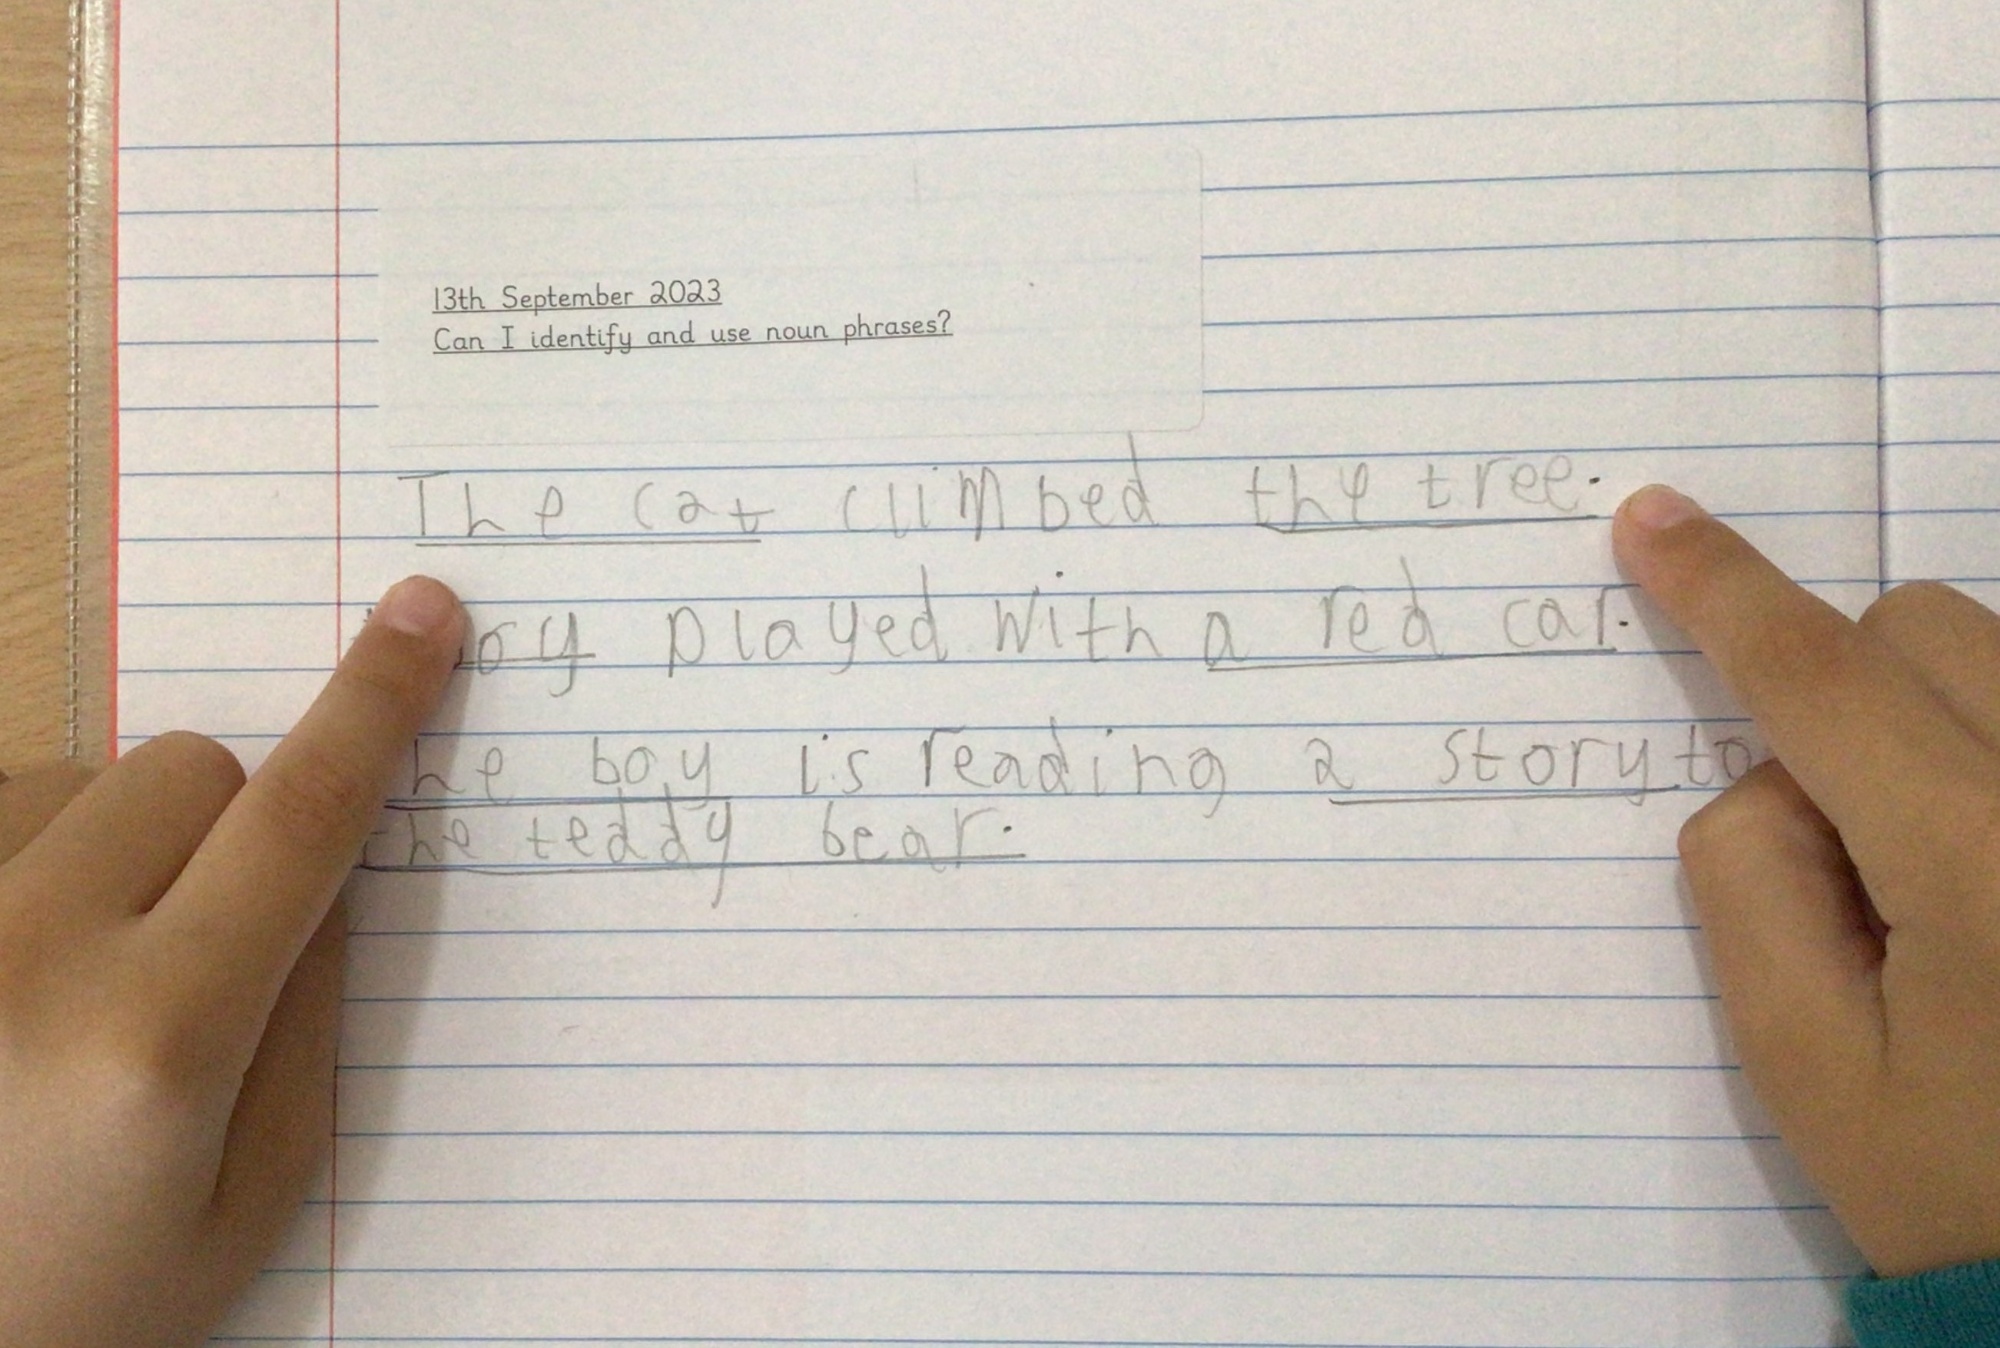 13th September 2023
Can I identify and use noun phrases?
The cat climbed the tree.
played with a red car.
boy is reading a story to
the teddy bear.